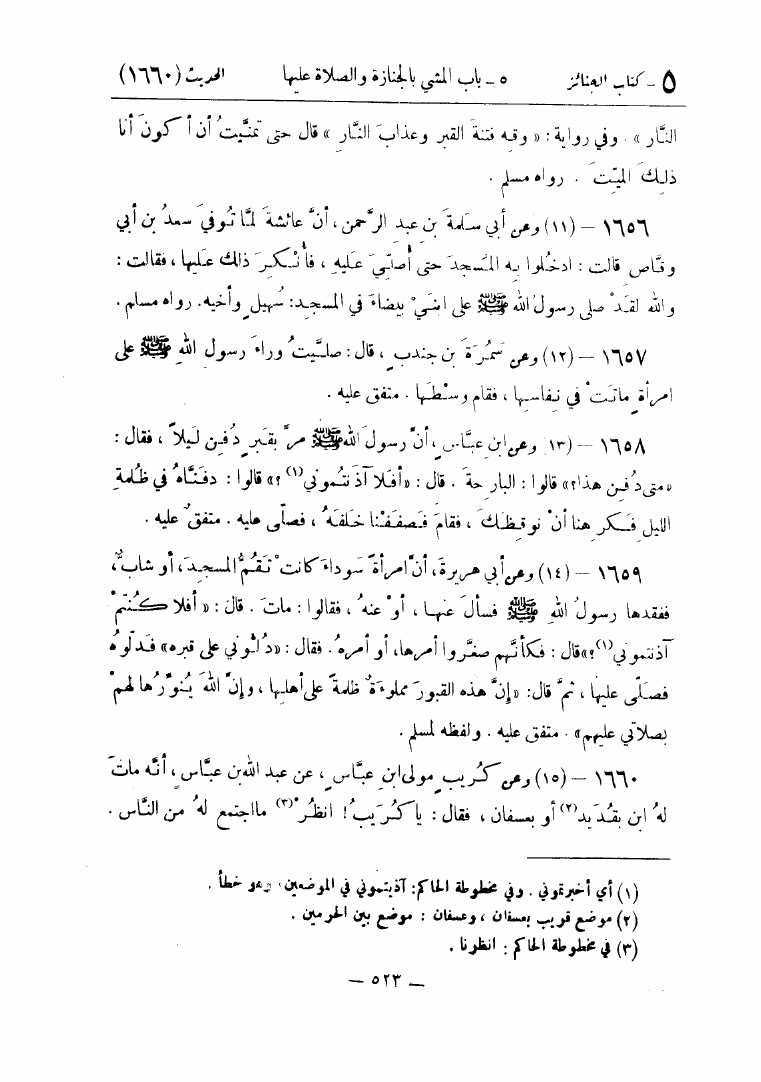 ٥ - كتاب الجنائز ٥ - باب المشي بالجنازة والصلاة عليها الحديث (١٦٦٠)
النَّار » . وفي رواية : « وقِه فتنةَ القبر وعذابَ النَّارِ » قال حتى تمنَّيتُ أن أكونَ أنا
ذلِكَ الميِّتَ . رواه مسلم .
١٦٥٦ - (١١) وعن أبي سَلمةَ بنِ عبد الرَّحمن ، أنَّ عائشةَ لمَّا تُوفيَ سعدُ بن أبي
وقَّاص قالت : ادخُلوا بِه المَسجدَ حتى أُصلِّيَ عَليهِ ، فأُنْكِرَ ذلك عَليها ، فقالت :
والله لقَدْ صلى رسولُ الله ﷺ على ابنَيْ بيضاءَ في المسجدِ: سُهيلٍ وأخيه. رواه مسلم .
١٦٥٧ - (١٢) وعن سَمُرَةَ بن جندبٍ ، قال : صلَّيتُ وراءَ رسول اللهِ ﷺ على
امرأةٍ ماتَتْ في نِفاسِها ، فقام وسْطَها . متفق عليه .
١٦٥٨ - (١٣) وعن ابنِ عبَّاسٍ ، أنَّ رسولَ الله ﷺ مرَّ بقَبرٍ دُفِن لَيلاً ، فقال :
«متى دُفِن هذا؟» قالوا : البارحةَ . قال : «أفَلا آذَنتُموني(١) ؟» قالوا : دفَنَّاهُ في ظُلمةِ
الليلِ فَكرِهنا أنْ نوقِظَكَ ، فقامَ فَصفَفْنا خَلفَهُ ، فصلَّى عليه . متفقٌ عليه .
١٦٥٩ - (١٤) وعن أبي هريرةَ، أنَّ امرأةً سَوداءَ كانتْ تَقُمُّ المسجِدَ، أو شابٌّ،
ففقدها رسولُ اللهِ ﷺ فسألَ عنها ، أوْ عنهُ ، فقالوا : ماتَ . قالَ : « أفلا كُنتمْ
آذنتموني(١)؟» قال : فكأنَّهم صغَّروا أمرها، أو أمرهُ. فقال : «دُلُّوني على قبره» فَدلُّوهُ
فصلَّى عليها ، ثمَّ قال: «إنَّ هذه القبورَ مملوءَةٌ ظلمةً على أهلِها ، وإنَّ اللهَ يُنوِّرُها لهمْ
بصلاتي عليهم» . متفق عليه . ولفظه لمسلم .
١٦٦٠ - (١٥) وعن كُريبٍ مولى ابنِ عبَّاسٍ ، عن عبد الله بن عبَّاسٍ ، أنَّه ماتَ
لهُ ابن بقُدَيد(٢) أو بعسفان ، فقال : يا كُرَيبُ ! انظُرْ(٣) ما اجتمع لهُ من النَّاس .
(١) أي أخبرتموني . وفي مخطوطة الحاكم : آذيتموني في الموضعين ، وهو خطأ .
(٢) موضع قريب بعسفان ، وعسفان : موضع بين الحرمين .
(٣) في مخطوطة الحاكم : انظرنا .
- ٥٢٣ -